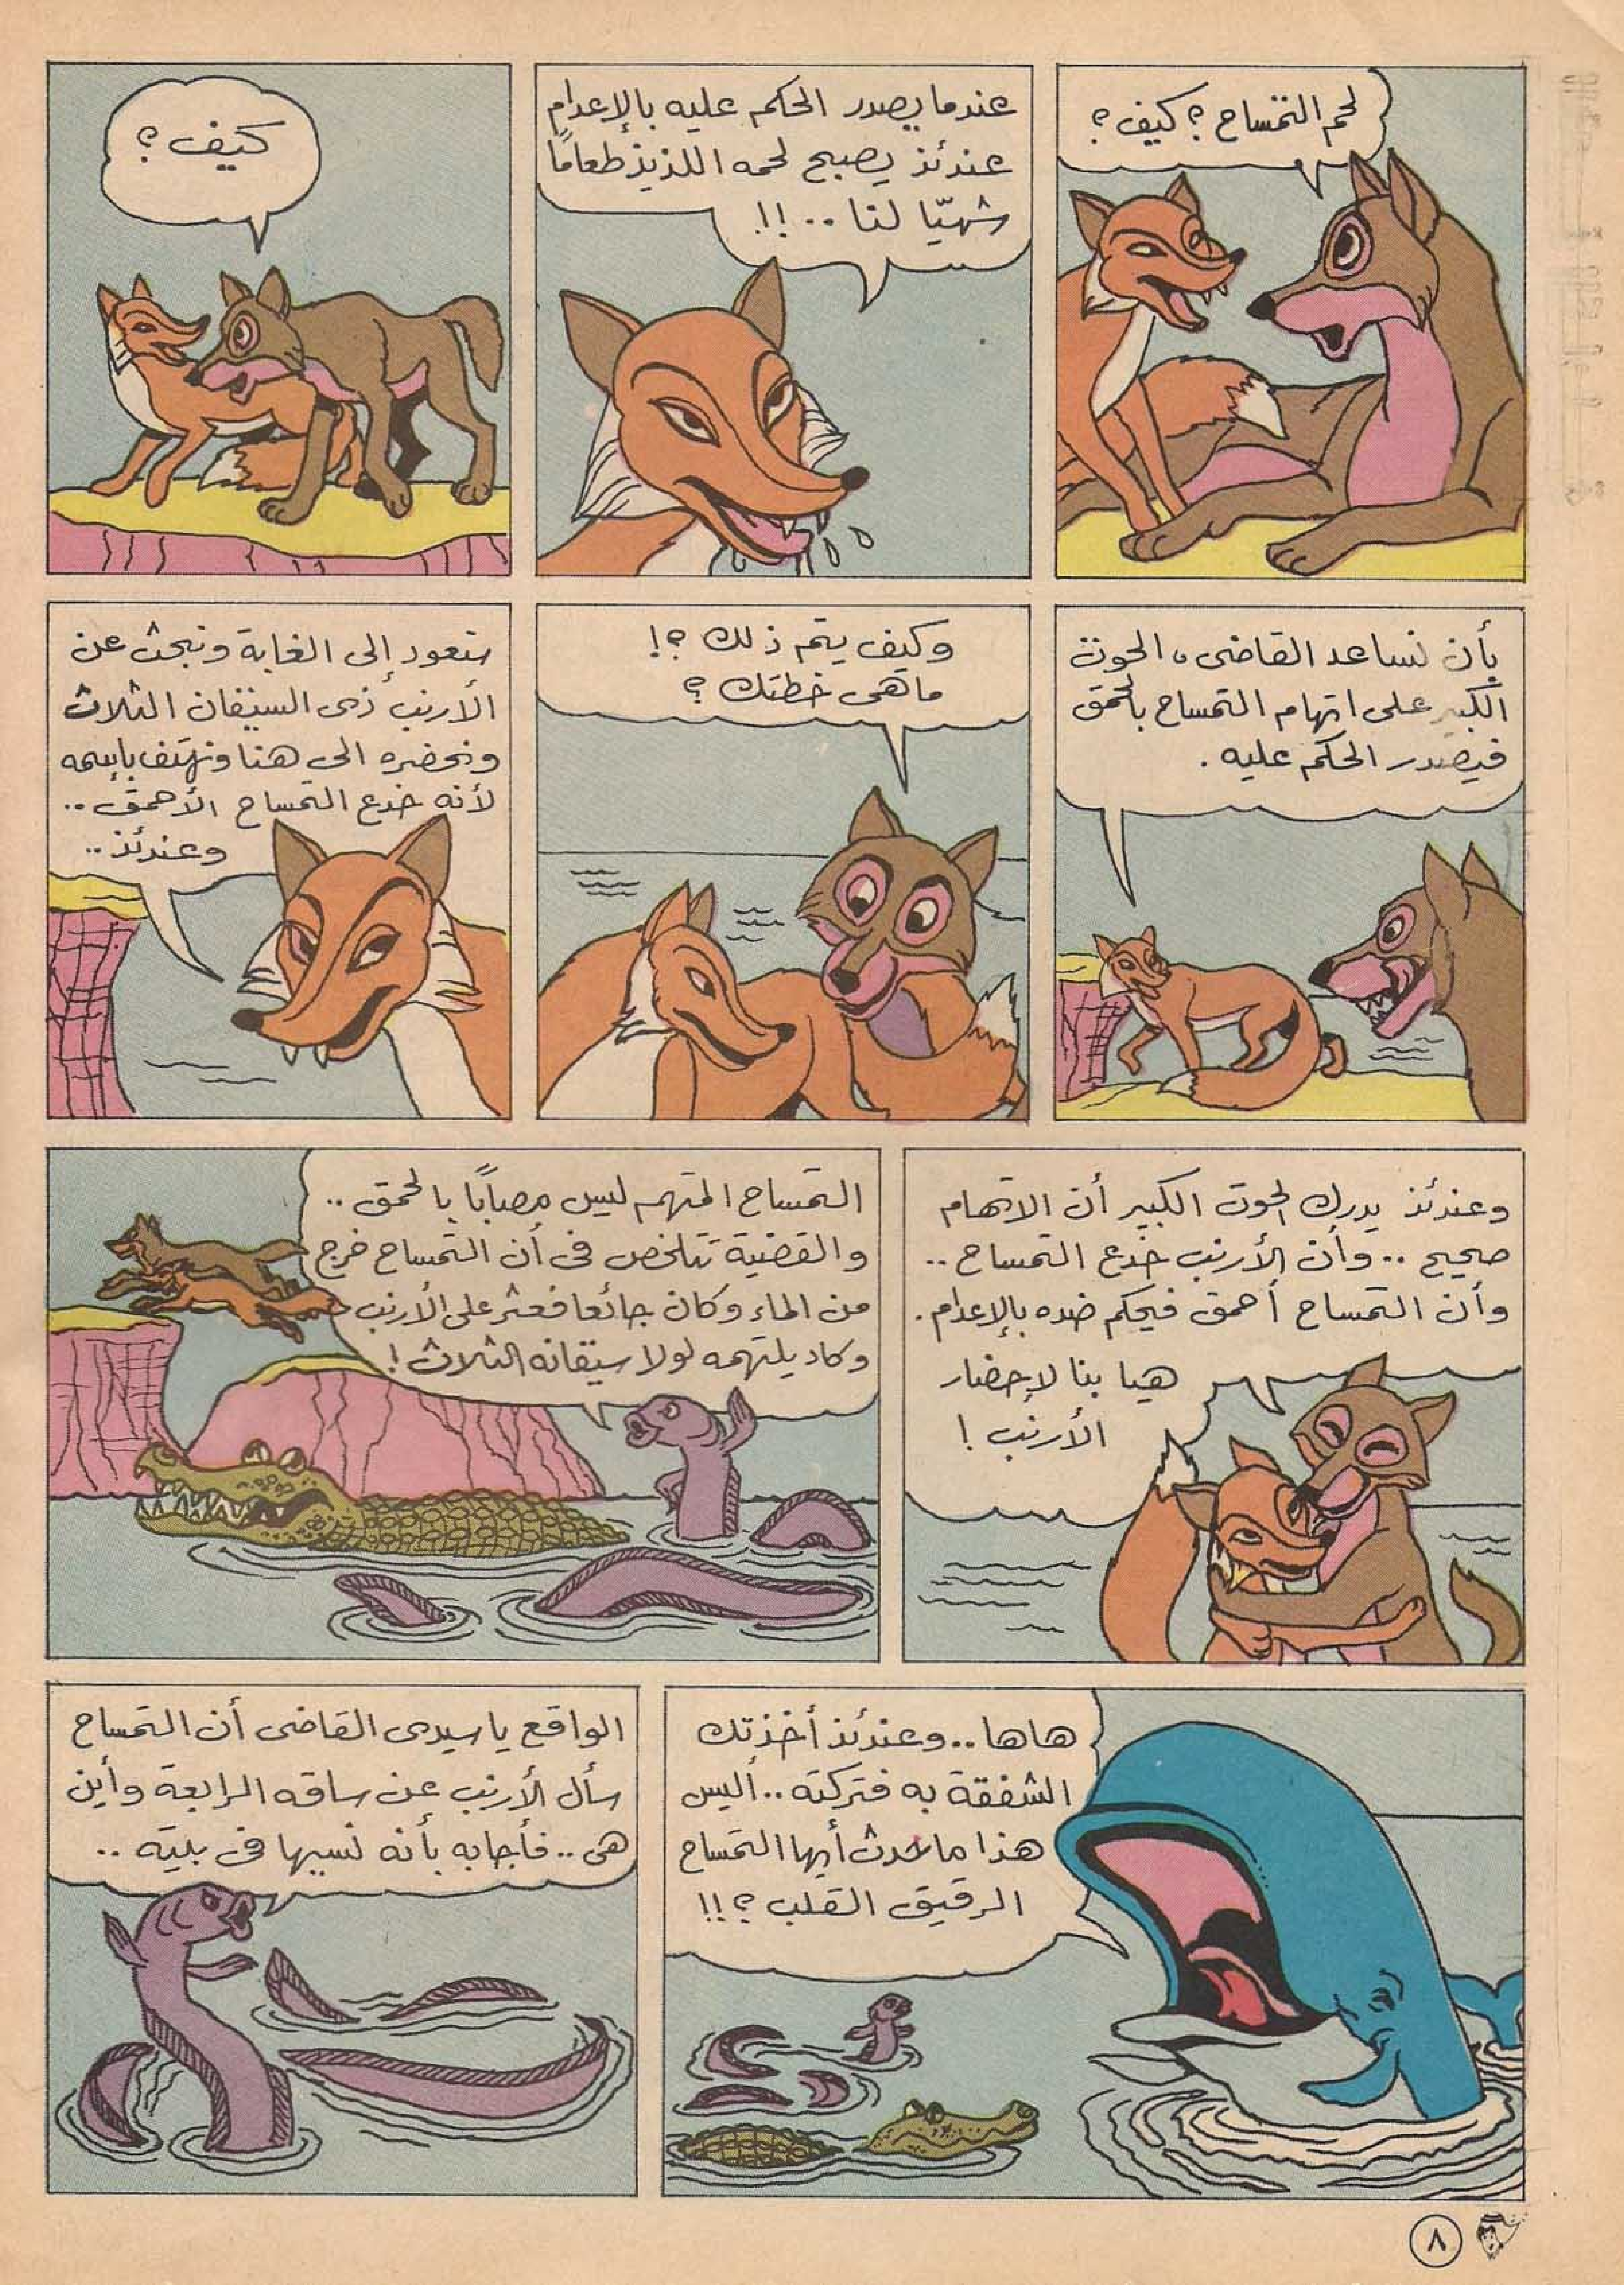 لحم التمساح؟ كيف؟
عندما يصدر الحكم عليه بالإعدام
عندئذ يصبح لحمه اللذيذ طعاماً
شهيّا لنا ..!!
كيف؟
بأن نساعد القاضى، الحوت
الكبير على اتهام التمساح بالحمق
فيصدر الحكم عليه.
وكيف يتم ذلك؟!
ماهى خطتك؟
سنعود إلى الغابة ونبحث عن
الأرنب ذى السيقان الثلاث
ونحضره الى هنا ونهتف بإسمه
لأنه خدع التمساح الأحمق..
وعندئذ..
وعندئذ يدرك الحوت الكبير أن الاتهام
صحيح .. وأن الأرنب خدع التمساح ..
وأن التمساح أحمق فيحكم ضده بالإعدام.
هيا بنا لإحضار
الأرنب!
التمساح المتهم ليس مصاباً بالحمق ..
والقضية تتلخص فى أن التمساح خرج
من الماء وكان جائعا فعثر على الأرنب
وكاد يلتهمه لولا سيقانه الثلاث!
هاها.. وعندئذ أخذتك
الشفقة به فتركته .. أليس
هذا ما حدث أيها التمساح
الرقيق القلب؟!!
الواقع يا سيدى القاضى أن التمساح
سأل الأرنب عن ساقه الرابعة وأين
هى .. فأجابه بأنه نسيها فى بيته ..
٨